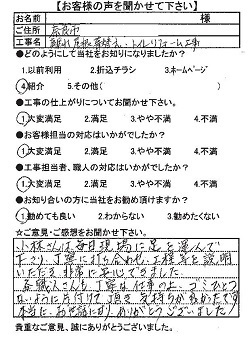 【お客様の声を聞かせて下さい】
お名前 様
ご住所 奈良市
工事名 離れ瓦礼葺替え、トイレリフォーム工事
●どのようにして当社をお知りになりましたか?
1.以前利用 2.折込チラシ 3.ホームページ
4.紹介 5.その他(
●工事の仕上がりについてお聞かせ下さい。
1.大変満足 2.満足 3.やや不満 4.不満
●お客様担当の対応はいかがでしたか?
1.大変満足 2.満足 3.やや不満 4.不満
●工事担当者、職人の対応はいかがでしたか?
1.大変満足 2.満足 3.やや不満 4.不満
●お知り合いの方に当社をお勧め頂けますか?
1.勧めても良い 2.わからない 3.勧めたくない
☆ご意見・ご感想をお聞かせ下さい。
小林さんは毎日現場に足を運んで
下さり、丁寧に打ち合わせ、工程等を説明
いただき、非常に安心できました。
各職人さんも丁寧な仕事の上、ゴミひとつ
ないように片付けて頂き、気持ちが良かったです
本当にお世話になり、ありがとうございました
貴重なご意見、誠にありがとうございました。